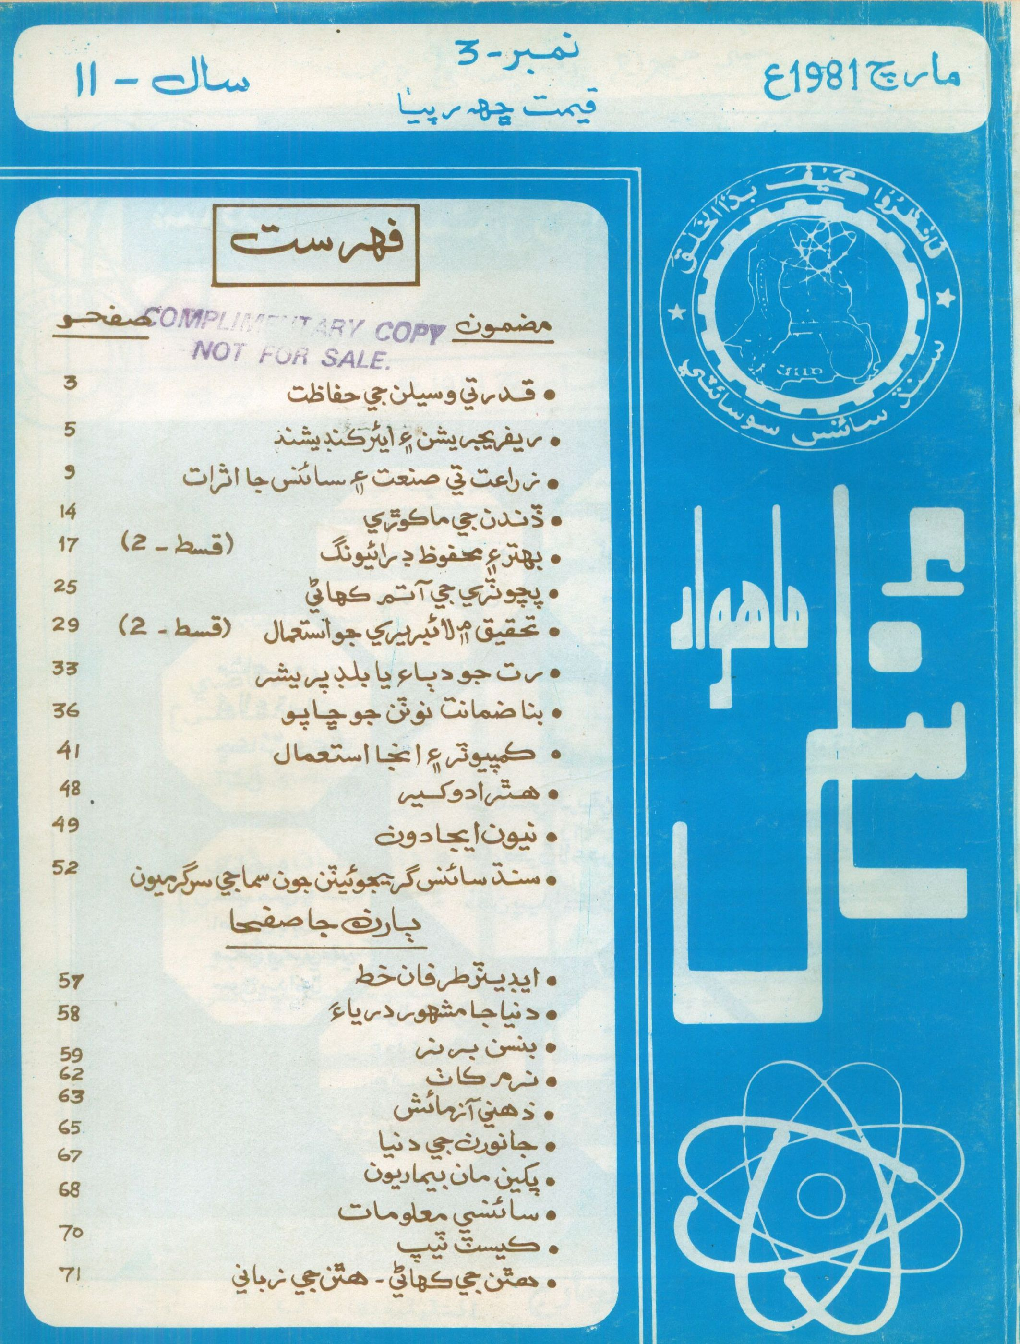 مارچ 1981ع
نمبر-3
قيمت ڇهه رپيا
سال - 11
فانظروا کيف بدأ الخلق
سنڌ سائنس سوسائٽي
ماهوار
سائنس
فهرست
مضمون
صفحو
COMPLIMENTARY COPY
NOT FOR SALE.
• قدرتي وسيلن جي حفاظت 3
• ريفريجريشن ۽ ايئرڪنڊيشنڊ 5
• زراعت تي صنعت ۽ سائنس جا اثرات 9
• ڏندن جي ماکوڙي 14
• بهتر ۽ محفوظ ڊرائيونگ (قسط - 2) 17
• جي آتم ڪهاڻي 25
• تحقيق ۾ لائبريري جو استعمال (قسط - 2) 29
• رت جو دٻاءُ يا بلڊ پريشر 33
• بنا ضمانت نوٽن جو ڇاپو 36
• ڪمپيوٽر ۽ انجا استعمال 41
• هٿرادو کير 48
• نيون ايجادون 49
• سنڌ سائنس گريجوئيٽن جون سماجي سرگرميون 52
ٻارن جا صفحا
• ايڊيٽر طرفان خط 57
• دنيا جا مشهور درياءَ 58
• بنسن برنر 59
• نرم ڪاٺ 62
• ذهني آزمائش 63
• جانورن جي دنيا 65
• پکين مان بيماريون 67
• سائنسي معلومات 68
• ڪيسٽ ٽيپ 70
• هٿن جي ڪهاڻي - هٿن جي زباني 71